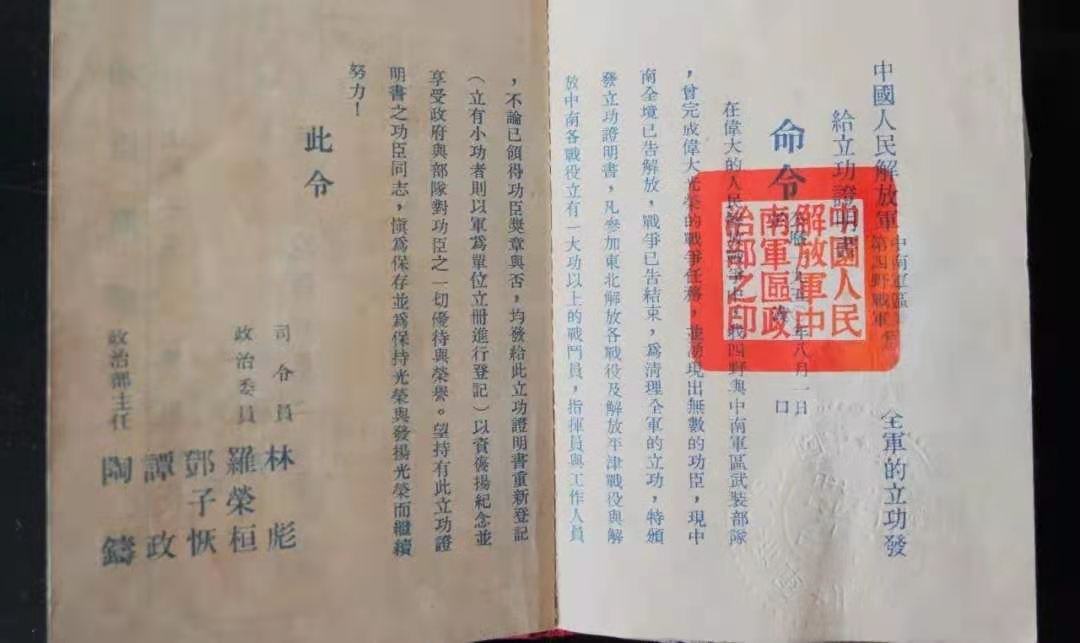 中國人民解放軍
中南軍區
第四野戰軍
全軍的立功發
給立功證明書
命令
年八月一日
中國人民
解放軍中
南軍區政
治部之印
在偉大的人民解放戰爭中,我四野與中南軍區武裝部隊
,曾完成偉大光榮的戰爭任務,並湧現出無數的功臣,現中
南全境已告解放,戰爭已告結束,爲清理全軍的立功,特頒
發立功證明書,凡參加東北解放各戰役及解放平津戰役與解
放中南各戰役立有一大功以上的戰鬥員,指揮員與工作人員
,不論已領得功臣獎章與否,均發給此立功證明書重新登記
(立有小功者則以軍爲單位立冊進行登記)以資褒揚紀念並
享受政府與部隊對功臣之一切優待與榮譽。望持有此立功證
明書之功臣同志,愼爲保存並爲保持光榮與發揚光榮而繼續
努力!
此令
司令員 林彪
政治委員 羅榮桓
鄧子恢
譚政
政治部主任 陶鑄